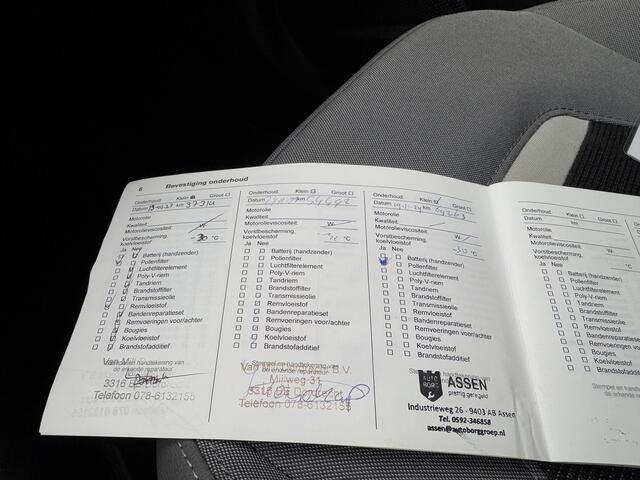 6 Bevestiging onderhoud
Onderhoud: Klein Groot
Datum km
Motorolie
Kwaliteit
Motorolieviscositeit: W-
Vorstbescherming,
koelvloeistof -30 °C
Ja Nee
Batterij (handzender)
Pollenfilter
Luchtfilterelement
Poly-V-riem
Tandriem
Brandstoffilter
Transmissieolie
Remvloeistof
Bandenreparatieset
Remvoeringen voor/achter
Bougies
Koelvloeistof
Brandstofadditief
Stempel en handtekening van
de erkende reparateur
Van Mill
3316
Telefoon 078-6132155
Onderhoud: Klein Groot
Datum km
Motorolie
Kwaliteit:
Motorolieviscositeit: W-
Vorstbescherming,
koelvloeistof °C
Ja Nee
Batterij (handzender)
Pollenfilter
Luchtfilterelement
Poly-V-riem
Tandriem
Brandstoffilter
Transmissieolie
Remvloeistof
Bandenreparatieset
Remvoeringen voor/achter
Bougies
Koelvloeistof
Brandstofadditief
Stempel en handtekening van
de erkende reparateur
Van B.V.
Mijlweg 31
3316
Telefoon 078-6132155
Onderhoud: Klein Groot
Datum 19-11-24 km
Motorolie
Kwaliteit:
Motorolieviscositeit: W-
Vorstbescherming,
koelvloeistof -30 °C
Ja Nee
Batterij (handzender)
Pollenfilter
Luchtfilterelement
Poly-V-riem
Tandriem
Brandstoffilter
Transmissieolie
Remvloeistof
Bandenreparatieset
Remvoeringen voor/achter
Bougies
Koelvloeistof
Brandstofadditief
AUTO
BORG
ASSEN
prettig geregeld
Industrieweg 26 - 9403 AB Assen
Tel. 0592-346858
assen@autoborggroep.nl
Onderhoud: Klein
Datum
Motorolie
Kwaliteit:
Motorolieviscositeit:
Vorstbescherming,
koelvloeistof
Ja Nee
Batterij (handzender)
Pollenfilter
Luchtfilterelement
Poly-V-riem
Tandriem
Brandstoffilter
Transmissieolie
Remvloeistof
Bandenreparatieset
Remvoeringen
Bougies
Koelvloeistof
Brandstofadditief
Stempel en
de erkende